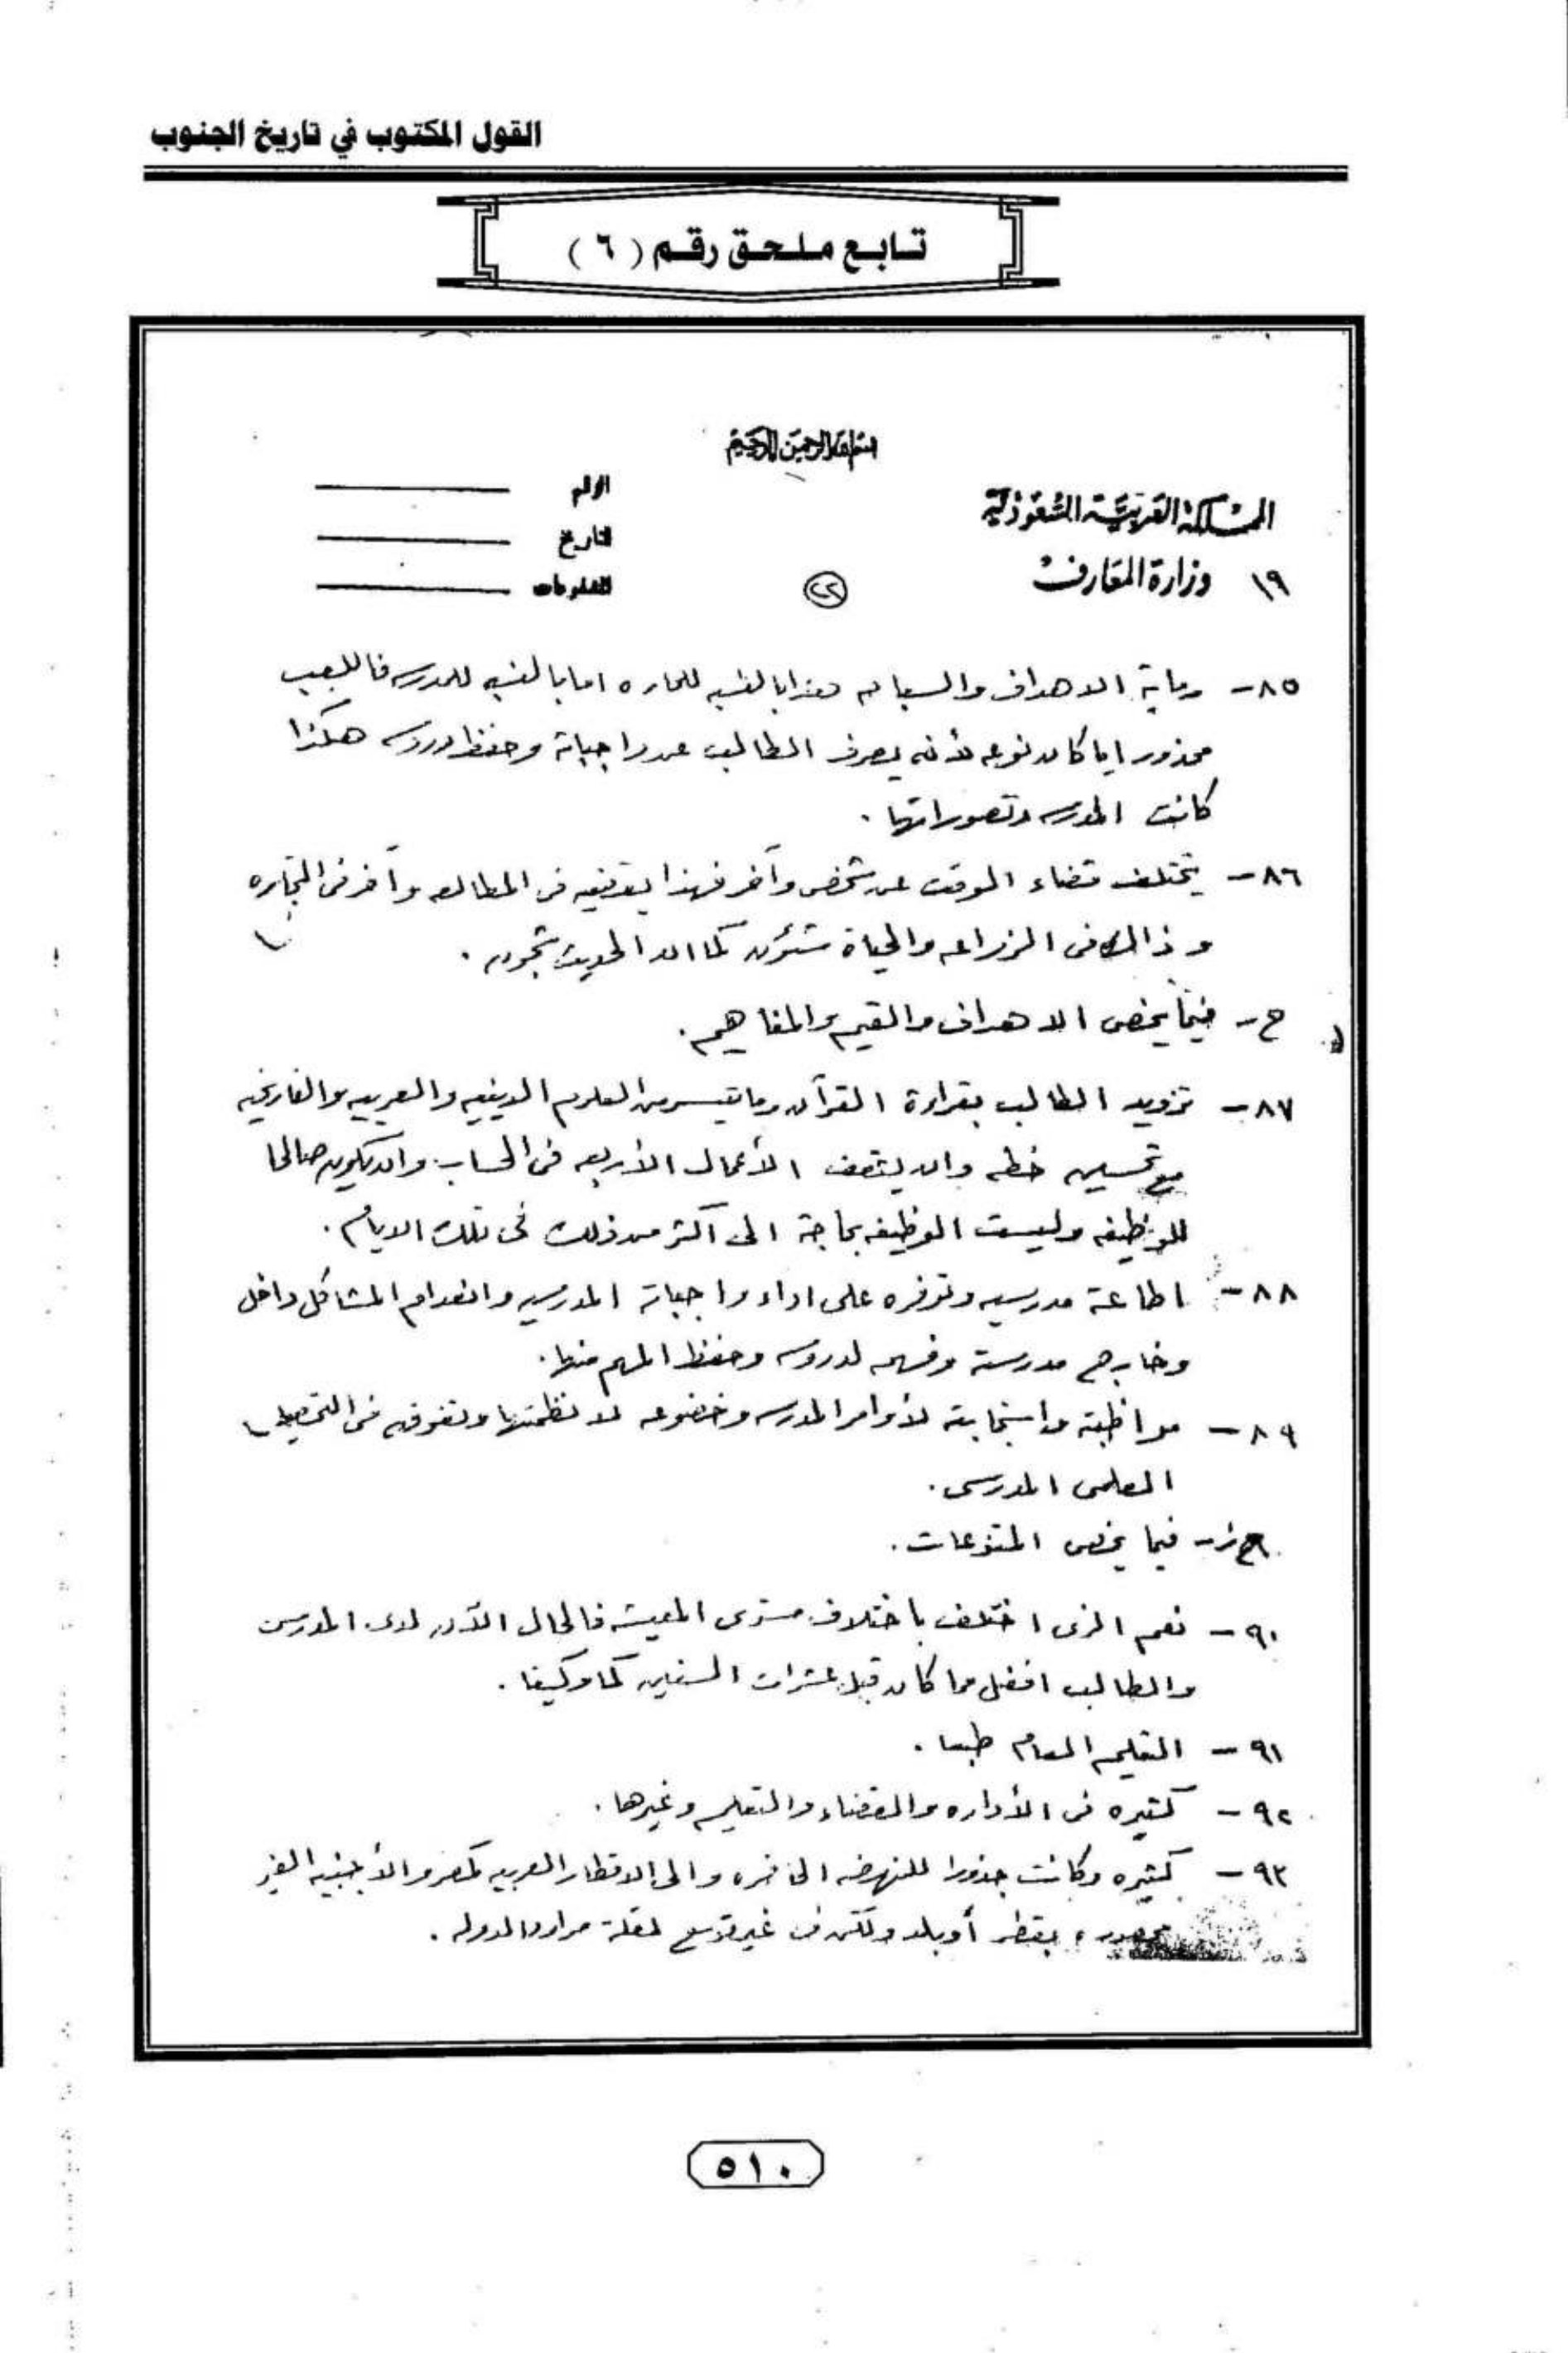 القول المكتوب في تاريخ الجنوب
تابع ملحق رقم (٦)
بسم الله الرحمن الرحيم
المملكة العربية السعودية
الرقم
التاريخ
١٩ وزارة المعارف
٢٢
المعلومات
٨٥ - رماية الاهداف والسباحه هذا بالنسبه للحاره اما بالنسبه للمدرسه فاللعب
محذور ايا كان نوعه لأنه يصرف الطالب عن واجباته وحفظ دروسه هكذا
كانت المدرسه وتصوراتها .
٨٦ - يختلف قضاء الوقت عن شخص وآخر فهذا يقضيه فى المطالعه وآخر فى التجاره
وذالك فى الزراعه والحياة شئون كما ان الحديث شجون .
ح - فيما يخص الاهداف والقيم والمفاهيم .
٨٧ - تزويد الطالب بقراءة القرآن وما تيسر من العلوم الدينيه والعربيه والتاريخيه
مع تحسين خطه وان يثقف الأعمال الأربعه فى الحساب وان يكون صالحا
للوظيفه وليست الوظيفه بحاجة الى أكثر من ذلك فى تلك الايام .
٨٨ - اطاعة مدرسيه وتوفره على اداء واجباته المدرسيه وانعدام المشاكل داخل
وخارج مدرسته وفهمه لدروسه وحفظ المهم منها .
٨٩ - مواظبته واستجابته لأوامر المدرسه وخضوعه لانظمتها وتفوقه فى التحصيل
العلمى المدرسى .
ح ز - فيما يخص المتنوعات .
٩٠ - نعم الزى اختلف باختلاف مستوى المعيشه فالحال الآن لدى المدرس
والطالب افضل مما كان قبل عشرات السنين كما وكيفا .
٩١ - التعليم العام طبعا .
٩٢ - كثيره فى الأداره والقضاء والتعليم وغيرها .
٩٣ - كثيره وكانت جذورا للنهضه الحاضره والى الاقطار العربيه كمصر والأجنبيه الغير
محصوره بقطر أو بلد ولكن فى غير توسع لقلة موارد الدوله .
٥١٠